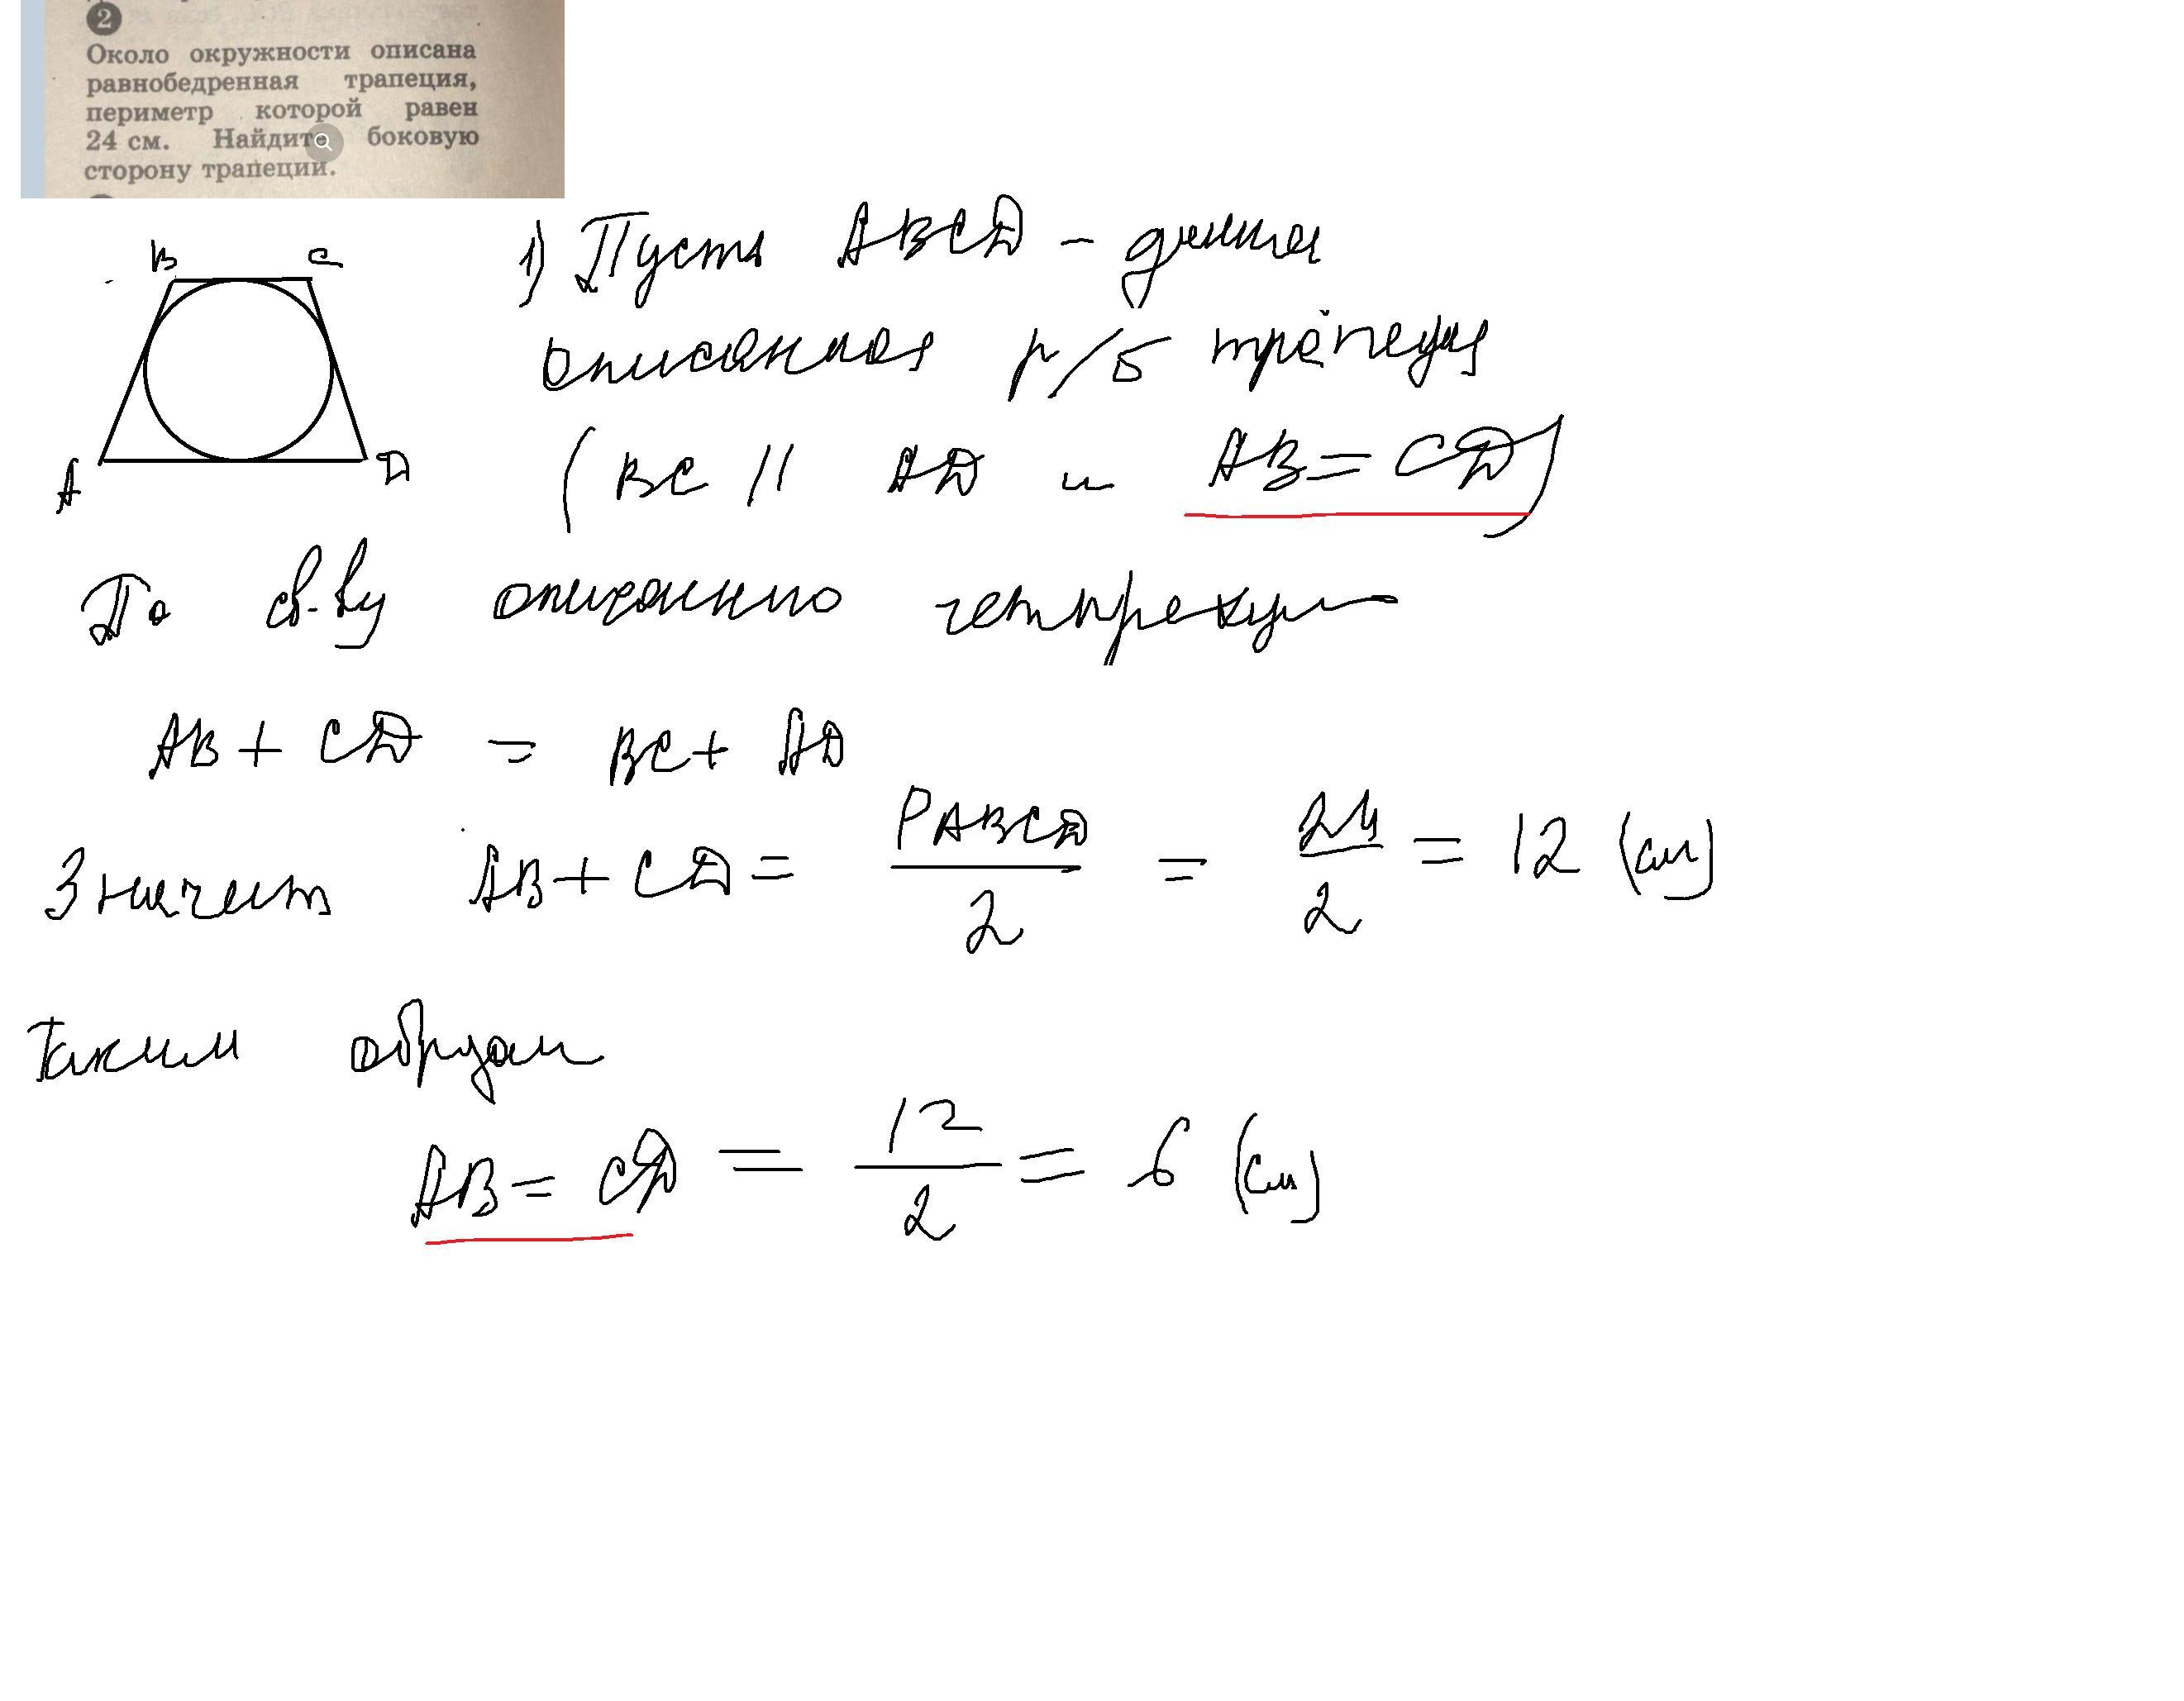 2
Около окружности описана
равнобедренная трапеция,
периметр которой равен
24 см. Найдите боковую
сторону трапеции.
B C
A D
1) Пусть ABCD - данная
описанная р/б трапеция
(BC || AD и AB = CD)
По св-ву описанного четырехуг
AB + CD = BC + AD
Значит AB + CD = PABCD/2 = 24/2 = 12 (см)
Таким образом
AB = CD = 12/2 = 6 (см)